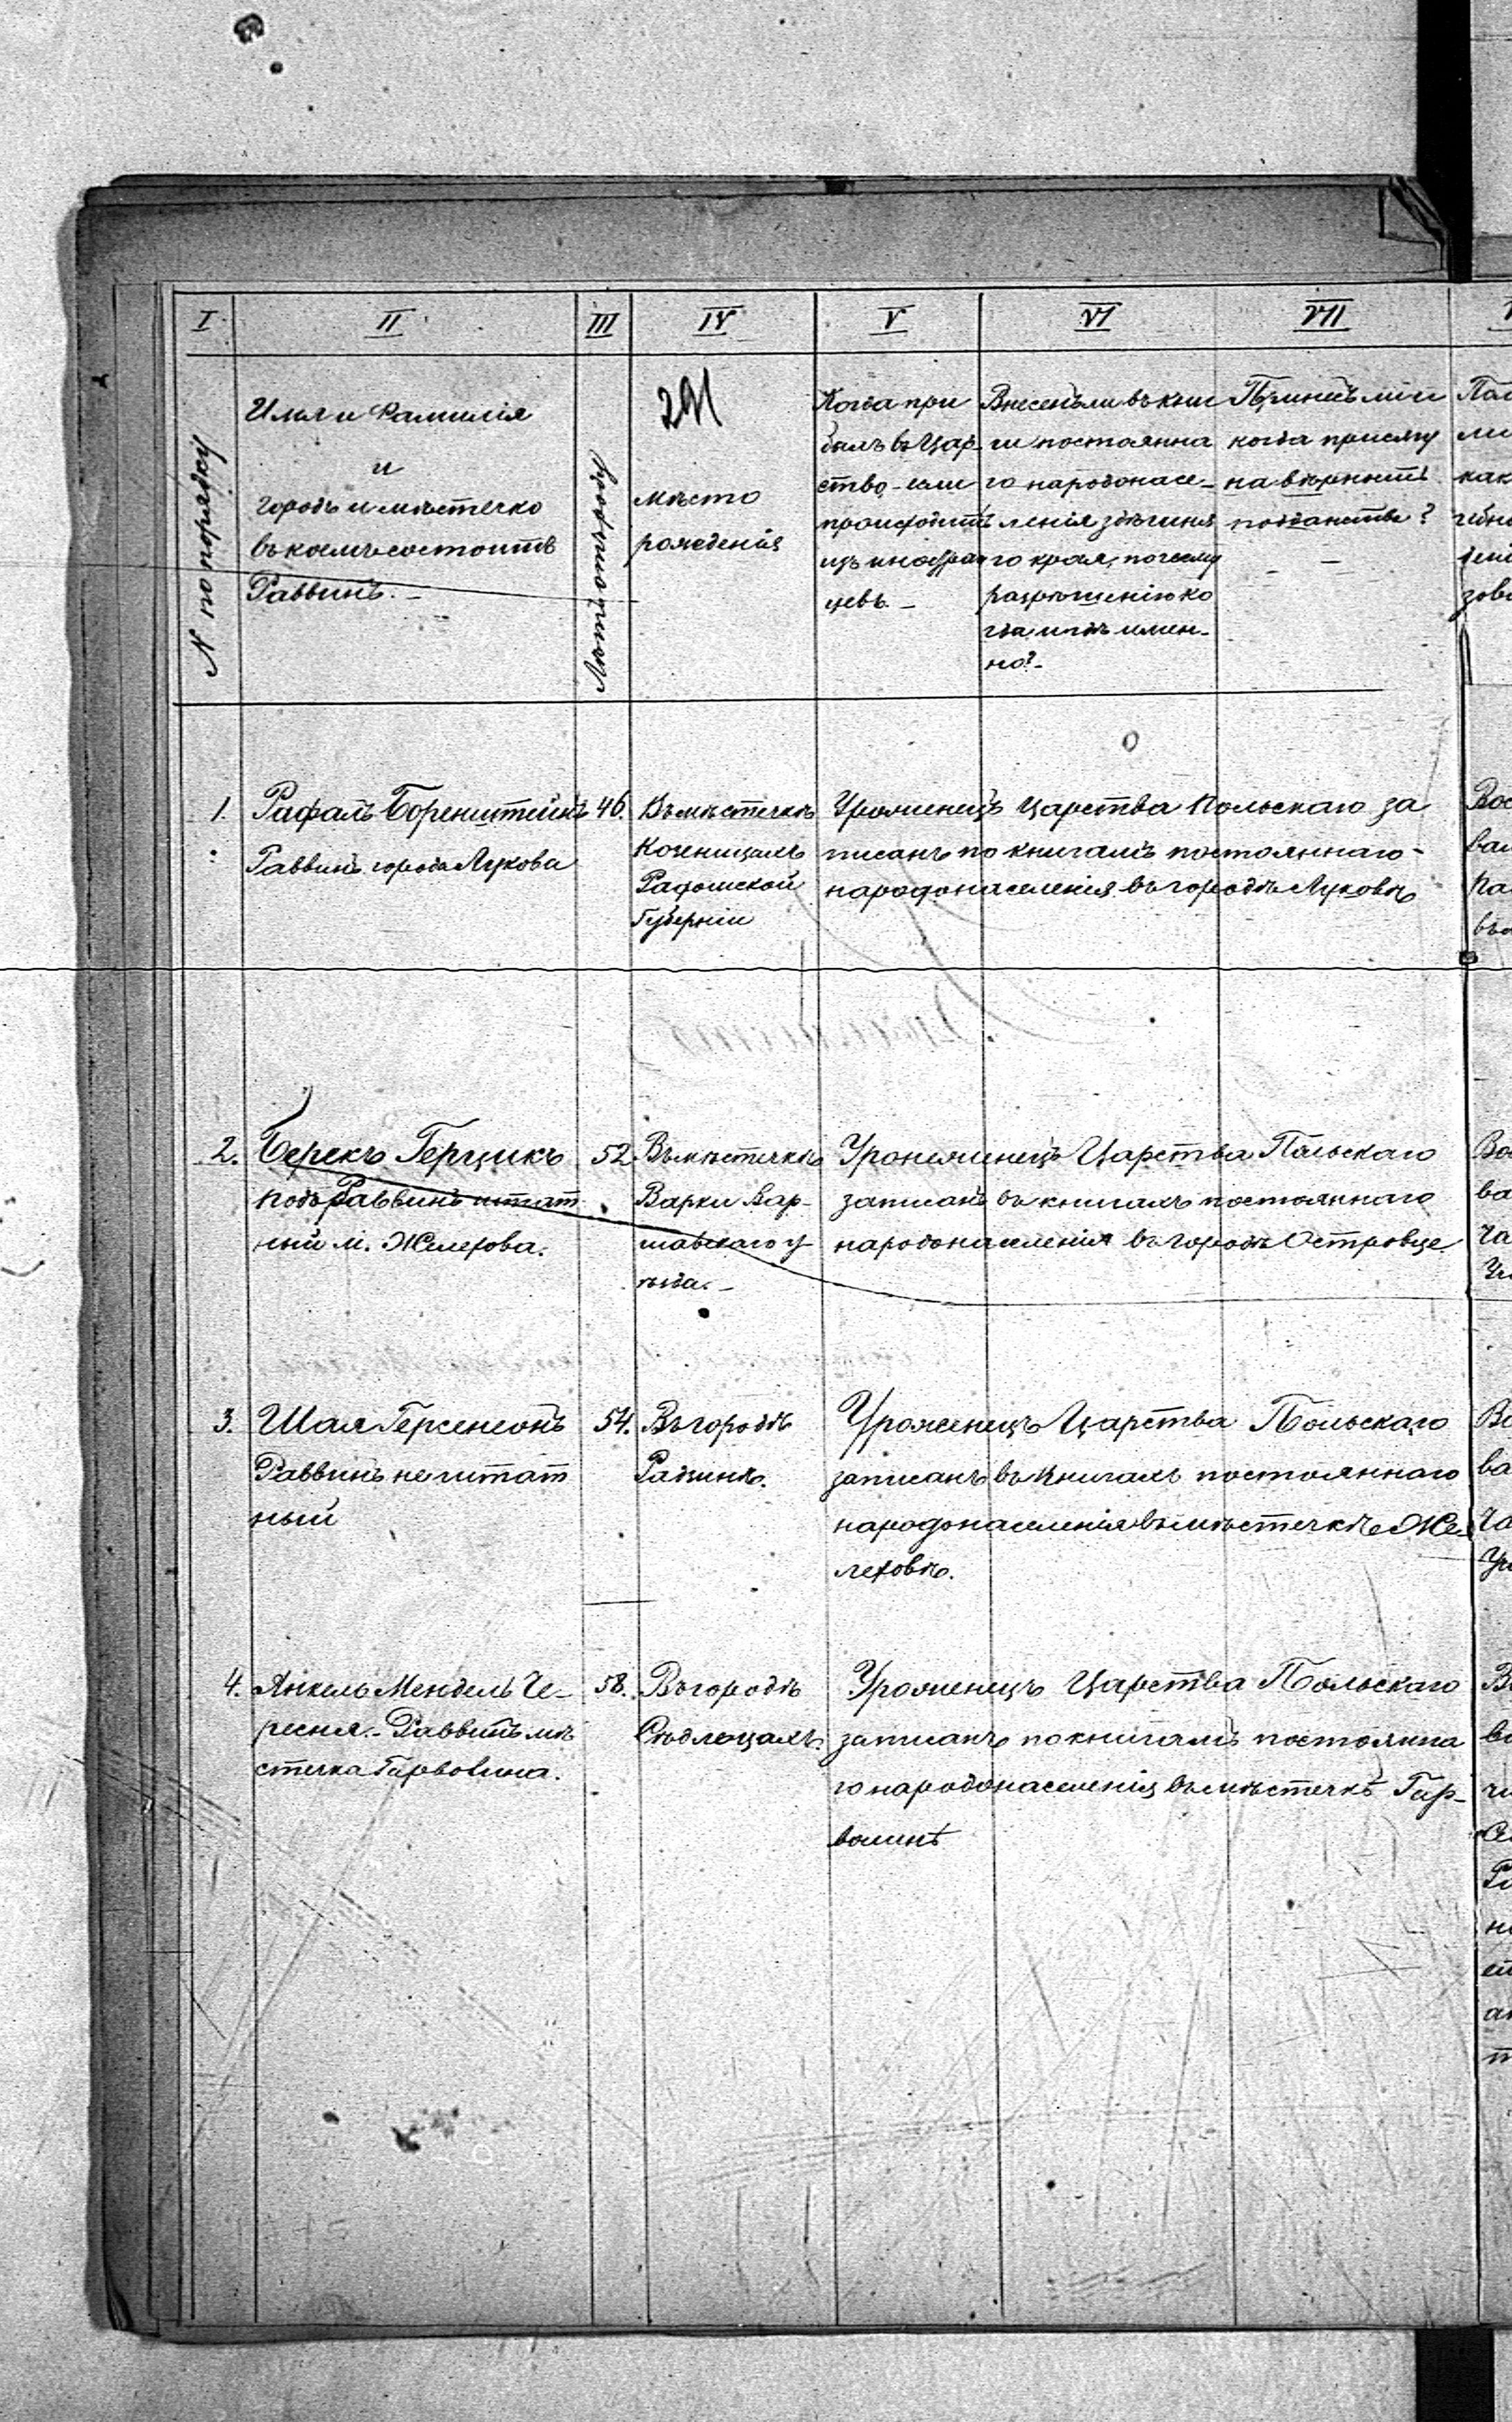 I
II
III
IV
V
VI
VII
N по порядку
Имя и Фамилія
и
городъ и мѣстечко
въ коемъ состоитъ
Раввинъ. –
291
мѣсто
рожденія
Когда при
былъ въ Цар-
ство – или
происходитъ
изъ иностран
цевъ. –
Внесенъ ли въ кни
ги постоянна
го народонасе-
ленія здѣшня
го края, почему
разрѣшенію ко
гда и гдѣ имен-
но? –
Принялъ ли и
когда присягу
на вѣрность
подданства?
– –
1.
Рафалъ Боренштейнъ
Раввинъ города Лукова
46.
Въ мѣстечкѣ
Козеницахъ
Радомской
Губерніи
Уроженецъ Царства Польскаго за
писанъ по книгамъ постояннаго –
народонаселенія въ городѣ Луковѣ
2.
Берекъ Герцикъ
подъ Раввинъ штат
ный м. Желехова.
52
Въ мѣстечкѣ
Варки Вар-
шавскаго у
ѣзда. –
Уроженецъ Царства Польскаго
записанъ въ книгахъ постояннаго
народонаселенія въ городѣ Островце
3.
Шая Герсенсонъ
Раввинъ не штат
ный
54.
Въ городѣ
Радинѣ.
Уроженецъ Царства Польскаго
записанъ въ книгахъ постояннаго
народонаселенія въ мѣстечкѣ Же-
леховѣ.
4.
Янкель Мендель Че-
ресня. – Раввинъ мѣ
стечка Гарволина.
58.
Въ городѣ
Сѣдлецахъ.
Уроженецъ Царства Польскаго
записанъ по книгамъ постоянна
го народонаселенія въ мѣстечкѣ Гар-
волинѣ